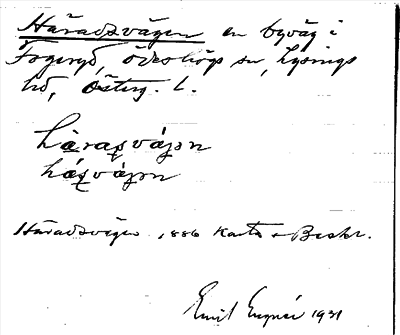 Häradsvägen en byväg i
Fogeryd, Ödeshögs sn, Lysings
hd, Österg. L.
häraşvä́gən
há̤şvägən
Häradsvägen 1886 Karta o Beskr.
Emil Engnér 1931